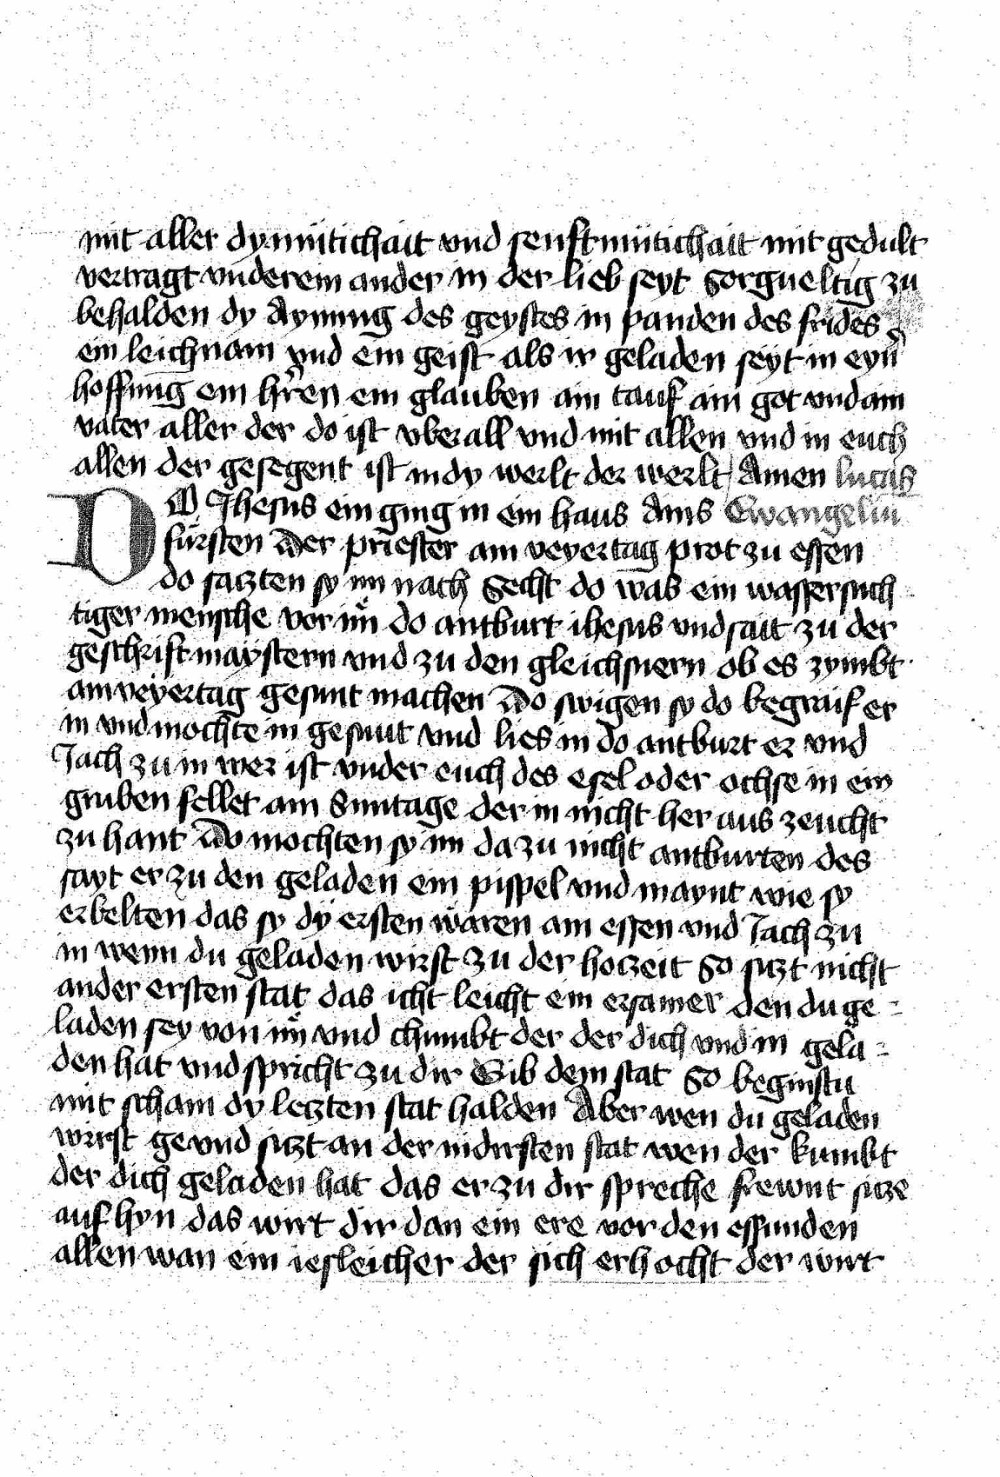 mit aller dymütichait vnd senftmütichait mit gedult
vertragt vnderem ander in der lieb seyt Sorgueltig zu
behalden dy Aynung des geystes in panden des frides
ein leichnam vnd ein geist als ir geladen seyt in eyn̄
hoffung ein hr̄ren ein glauben ain tauf ain got vnd ain
vater aller der do ist vberall vnd mit allen vnd in euch
allen der gesegent ist in dy werlt der werlt Amen lucas
DO Jhesus ein ging in ein haus Ains Ewangeliū
fürsten Der priester am veyertag prot zu essen
do satzten sy im nach Secht do was ein wassersuch
tiger mensche vor im do antburt ihesus vnd sait zu der
geschrift maystern vnd zu den gleichsnern ob es zymbt
am veyertag gesunt machen Do swigen sy do begraif er
in vnd mochte in gesunt vnd lies in do antburt er vnd
Jach zu in wer ist vnder euch des esel oder ochse in ein
gruben fellet am Suntage der in nicht her aus zeucht
zu hant Do mochten sy im da zu nicht antburten des
sayt er zu den geladen ein pispel vnd maynt wie sy
erbelten das sy dy ersten wären am essen vnd Jach zu
in wenn du geladen wirst zu der hoczeit So sitzt nicht
an der ersten stat das icht leicht ein ersamer den du ge
laden sey von im vnd chumbt der der dich vnd in gela
den hat vnd spricht zu dir Gib dem stat So beginstu
mit scham dy letzten stat halden Aber wen du geladen
wirst ge vnd sitzt an der nidristen stat wen der kumbt
der dich geladen hat das er zu dir spreche frewnt sitze
auf hyn das wirt dir dan ein ere vor den essunden
allen wan ein iesleicher der sich erhocht der wirt